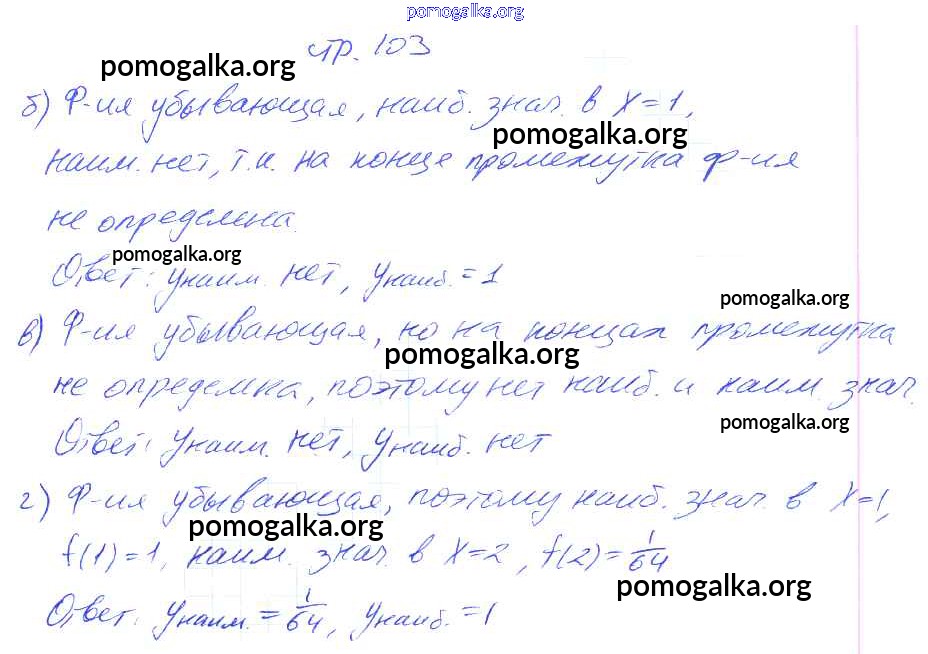 pomogalka.org
стр. 103
pomogalka.org
б) Ф-ия убывающая, наиб. знач. в x=1,
pomogalka.org
наим. нет, т.к. на конце промежутка ф-ия
не определена.
pomogalka.org
Ответ: yнаим. нет, yнаиб. = 1
pomogalka.org
в) Ф-ия убывающая, но на концах промежутка
pomogalka.org
не определена, поэтому нет наиб. и наим. знач.
pomogalka.org
Ответ: yнаим. нет, yнаиб. нет
г) Ф-ия убывающая, поэтому наиб. знач. в x=1,
pomogalka.org
f(1)=1, наим. знач. в x=2, f(2)=1/64
pomogalka.org
Ответ: yнаим. = 1/64, yнаиб. = 1